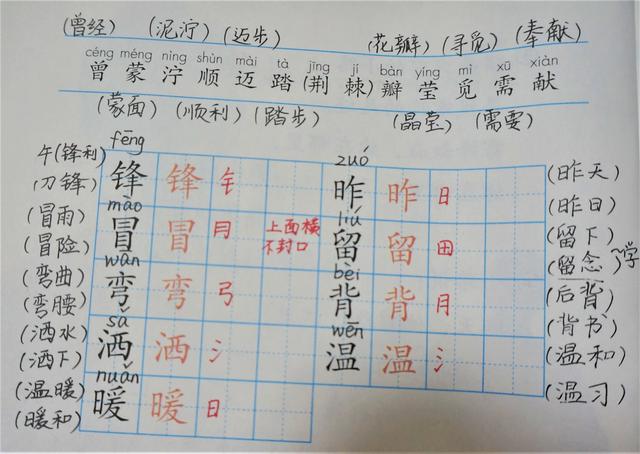 (曾经) (泥泞) (迈步) (花瓣) (寻觅) (奉献)
céng méng nìng shùn mài tà jīng jí bàn yíng mì xū xiàn
曾 蒙 泞 顺 迈 踏 (荆 棘) 瓣 莹 觅 需 献
(蒙面) (顺利) (踏步) (晶莹) (需要)
fēng
午(锋利)
(刀锋)
锋 锋 钅
mào
(冒雨)
(冒险)
冒 冒 冃 上面横不封口
wān
(弯曲)
(弯腰)
弯 弯 弓
sǎ
(洒水)
(洒下)
洒 洒 氵
nuǎn
(温暖)
(暖和)
暖 暖 日
zuó
昨 昨 日
(昨天)
(昨日)
liú
留 留 田
(留下)
(留念)
bèi
背 背 月
(后背)
(背书)
wēn
温 温 氵
(温和)
(温习)